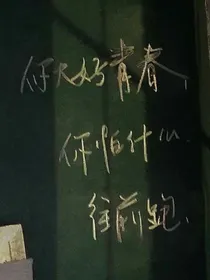 你大好青春、
你怕什么.
往前跑、